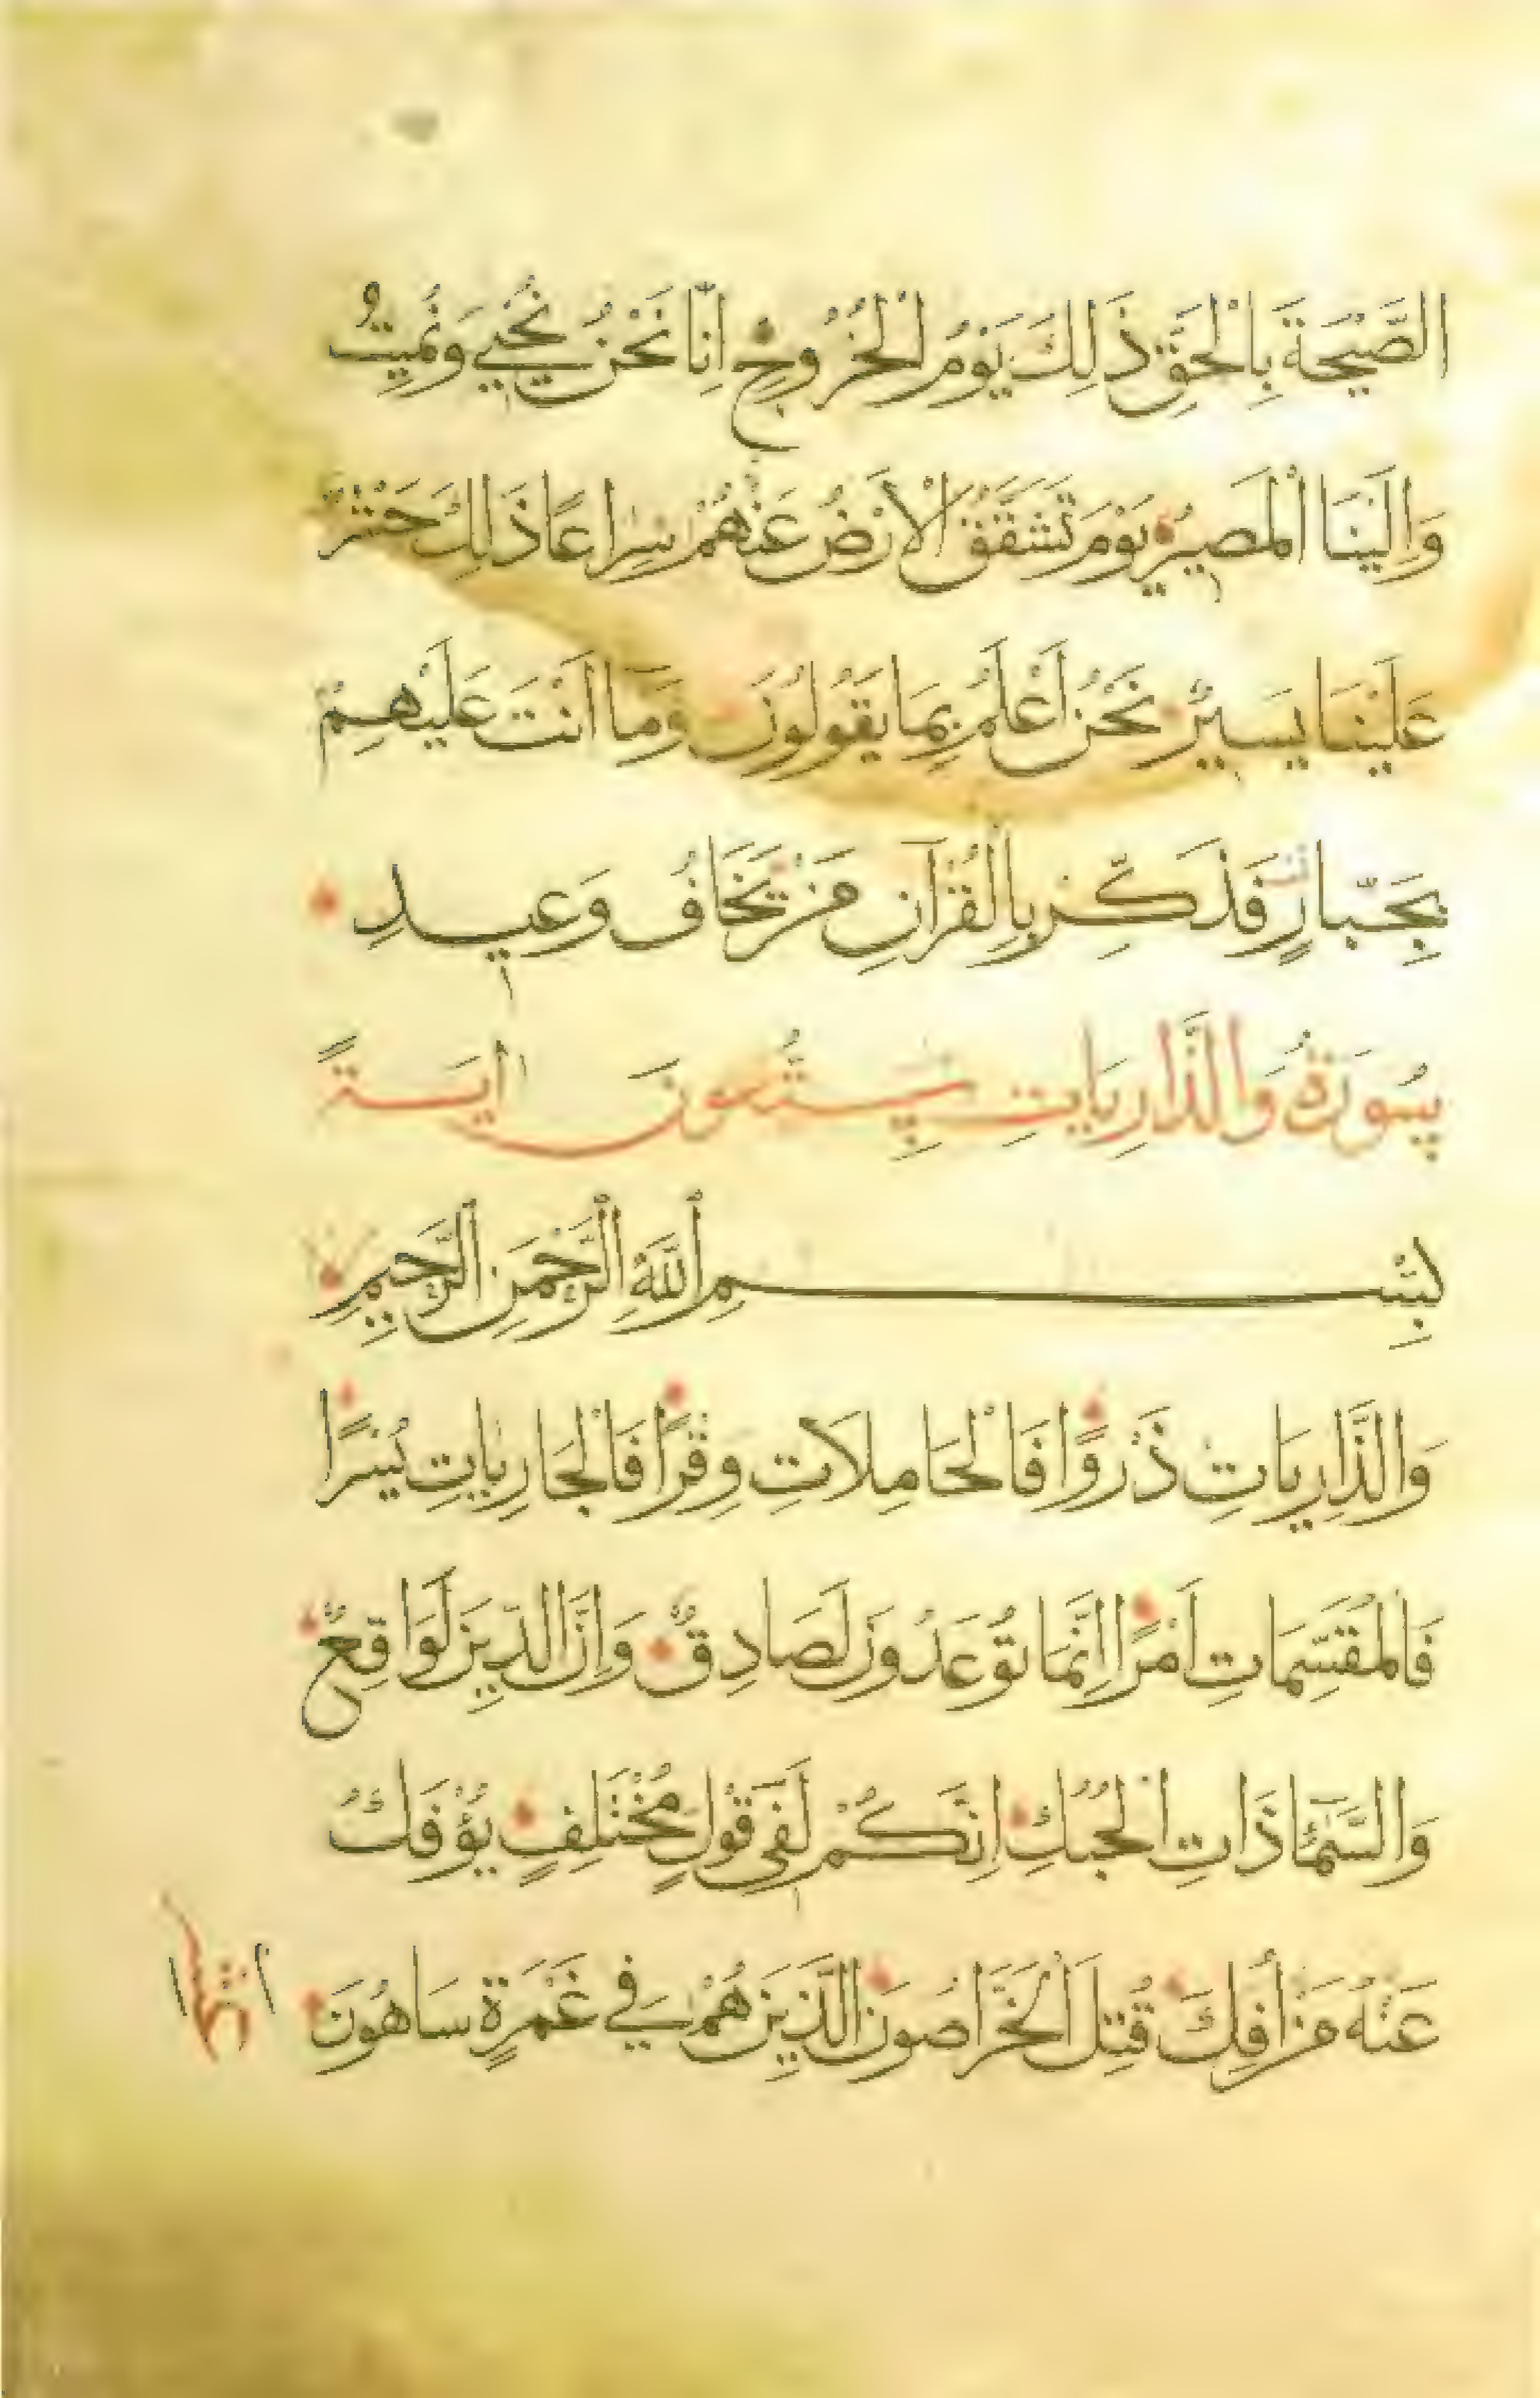 الصَّيْحَةَ بِالْحَقِّ ذَلِكَ يَوْمُ الْخُرُوجِ اِنَّا نَحْنُ نُحْيِي وَنُمِيتُ
وَاِلَيْنَا الْمَصِيرُ يَوْمَ تَشَقَّقُ الْاَرْضُ عَنْهُمْ سِرَاعًا ذَلِكَ حَشْرٌ
عَلَيْنَا يَسِيرٌ نَحْنُ اَعْلَمُ بِمَا يَقُولُونَ وَمَا اَنْتَ عَلَيْهِمْ
بِجَبَّارٍ فَذَكِّرْ بِالْقُرْآنِ مَنْ يَخَافُ وَعِيدِ
سُورَةُ وَالذَّارِيَاتِ سِتُّونَ اٰيَةً
بِسْمِ اللّٰهِ الرَّحْمَنِ الرَّحِيمِ
وَالذَّارِيَاتِ ذَرْوًا فَالْحَامِلَاتِ وِقْرًا فَالْجَارِيَاتِ يُسْرًا
فَالْمُقَسِّمَاتِ اَمْرًا اِنَّمَا تُوعَدُونَ لَصَادِقٌ وَاِنَّ الدِّينَ لَوَاقِعٌ
وَالسَّمَاءِ ذَاتِ الْحُبُكِ اِنَّكُمْ لَفِي قَوْلٍ مُخْتَلِفٍ يُؤْفَكُ
عَنْهُ مَنْ أُفِكَ قُتِلَ الْخَرَّاصُونَ الَّذِينَ هُمْ فِي غَمْرَةٍ سَاهُونَ